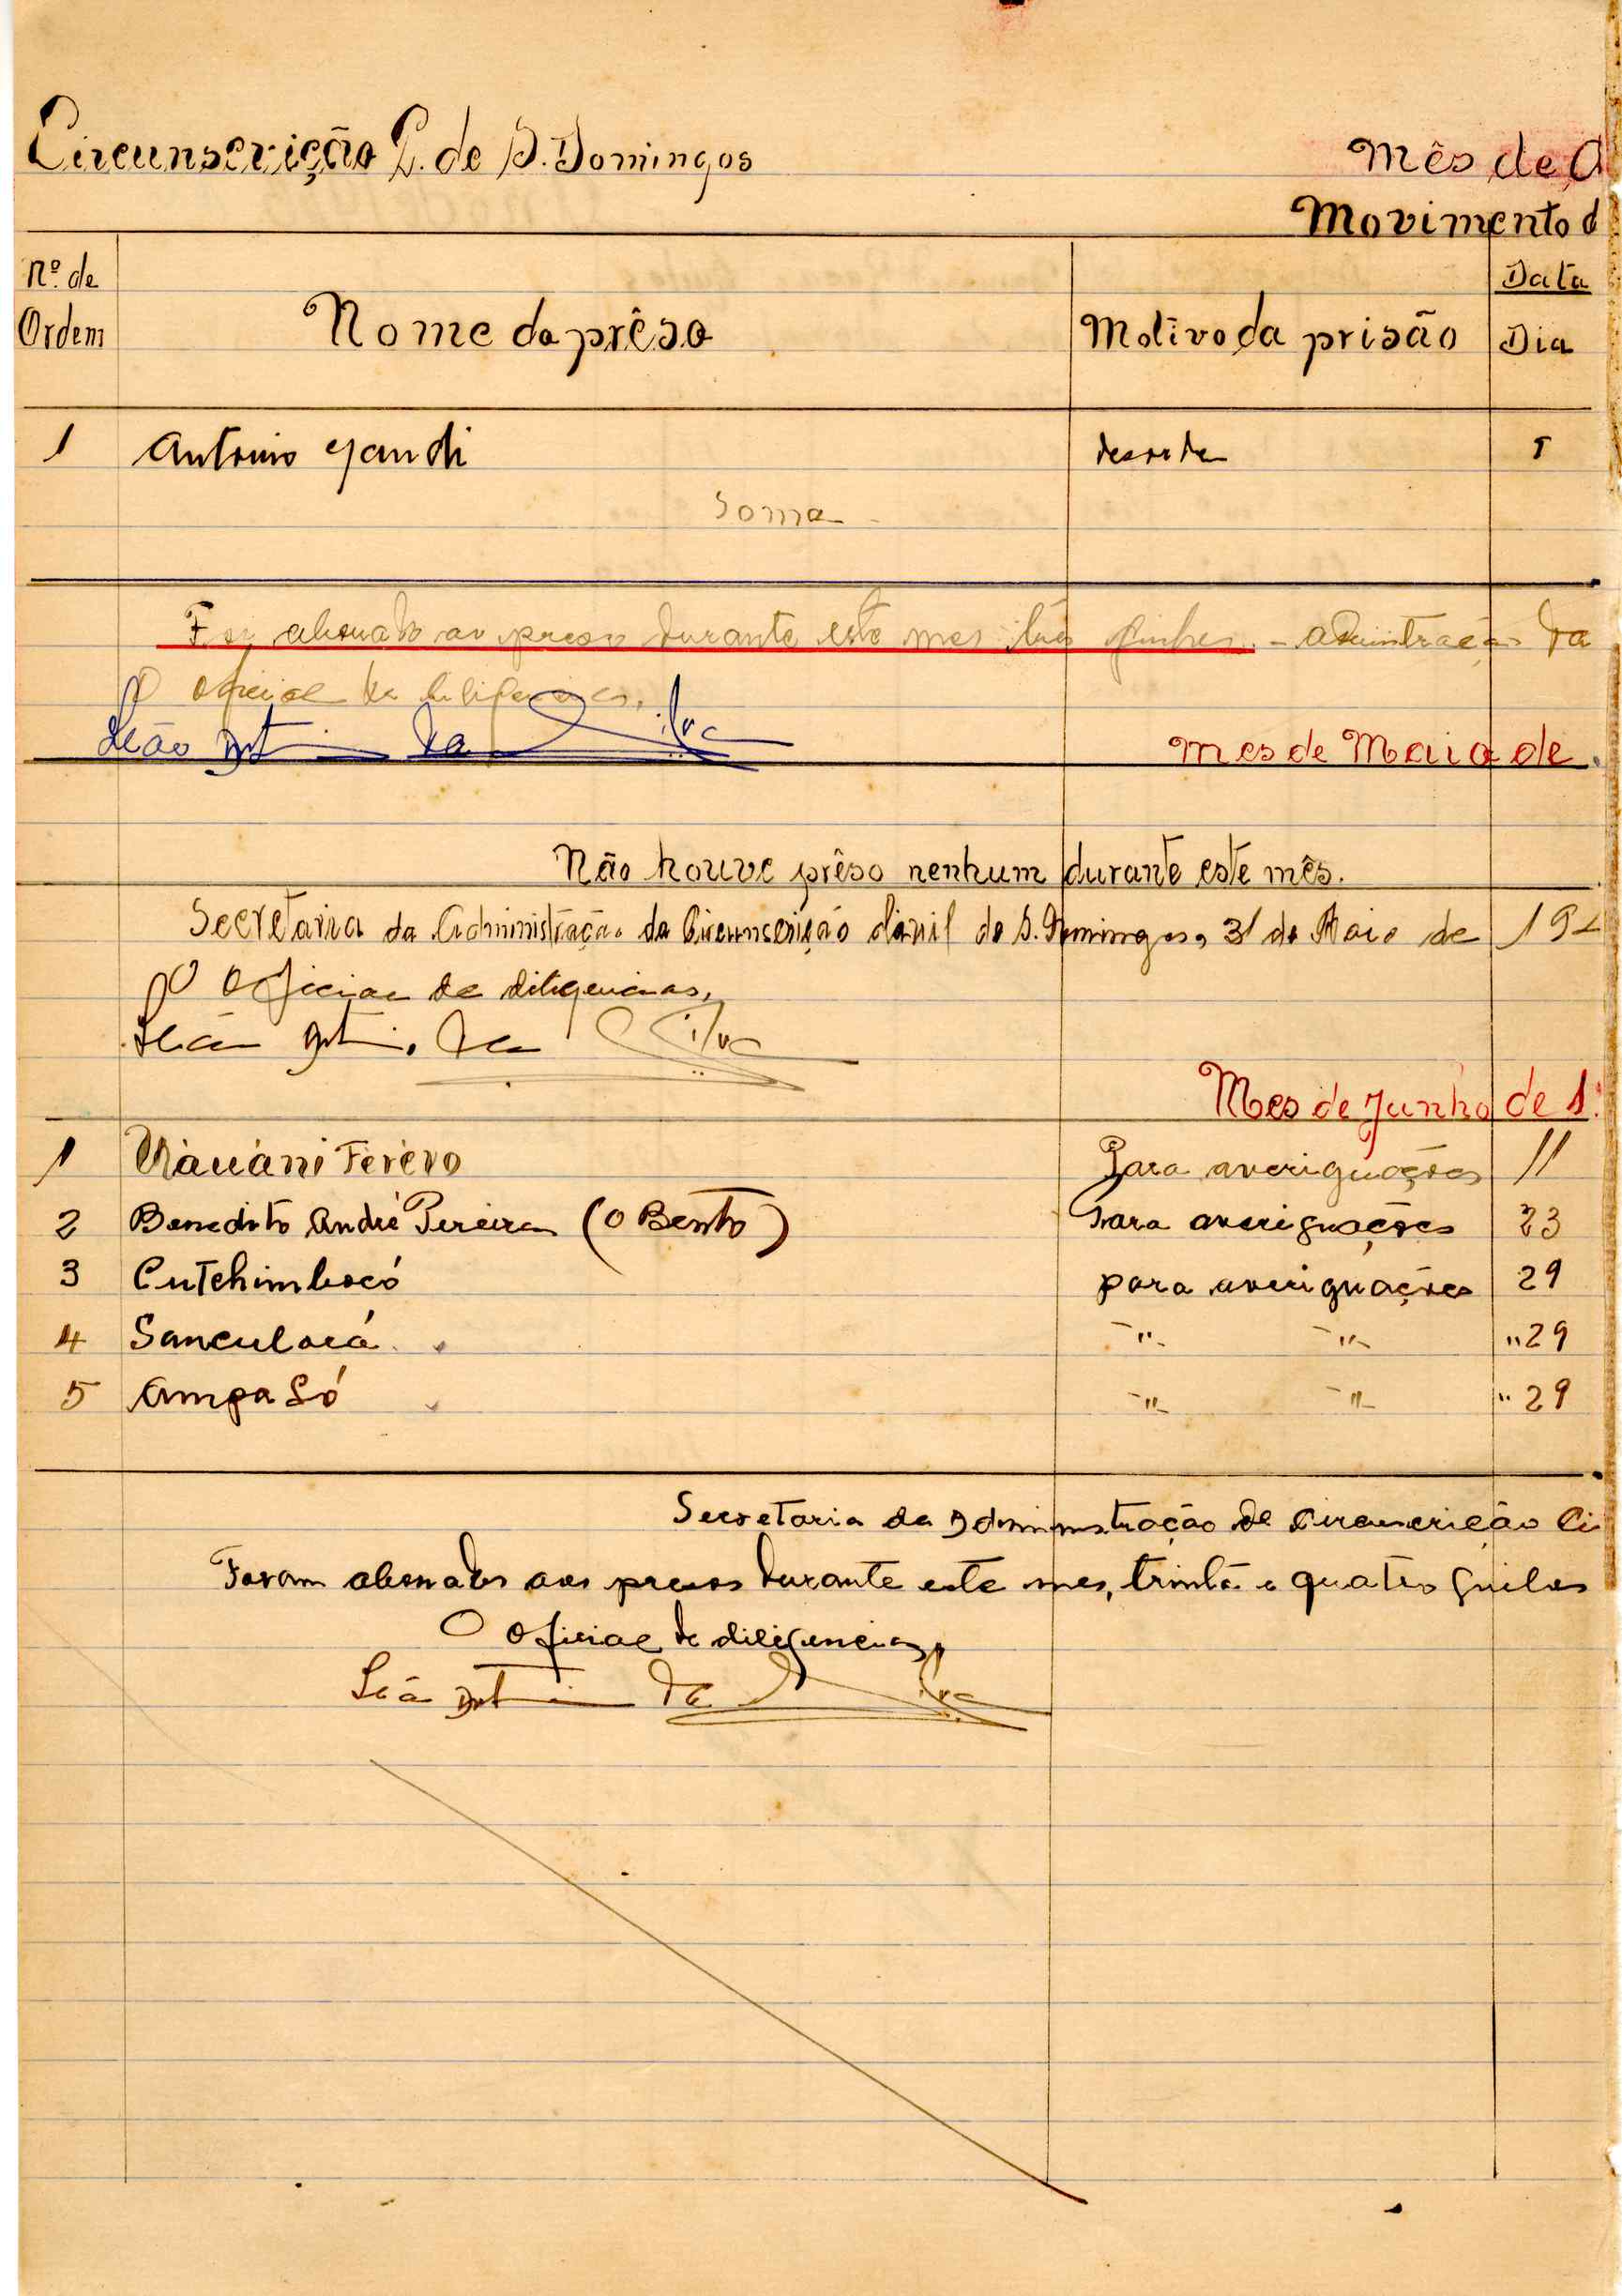 Circunscrição C. de S. Domingos
Mês de A
Movimento d
Nº. de Ordem
Nome do prêso
Motivo da prisão
Data
Dia
1 Antonio Jandi desorde
Soma
Foi abonado ao preso durante este mes três - da
O oficial de diligencias,
Leão da Silva
Mes de Maio de
Não houve prêso nenhum durante este mês.
Secretaria da Administração da Circunscrição Civil de S. Domingos, 31 de Maio de 19
O oficial de diligencias,
Leão da Silva
Mes de Junho de 1
1 Ferero Para averiguações 11
2 Benedito André Pereira (o Bento) Para averiguações 23
3 Cutchimbocó para averiguações 29
4 -"- -"- "29
5 Ampa Só -"- -"- "29
Secretaria da Administração de Circunscrição Ci
Foram abonados aos presos durante este mes, trinta e quatro quilos
O oficial de diligencias,
Leão da Silva